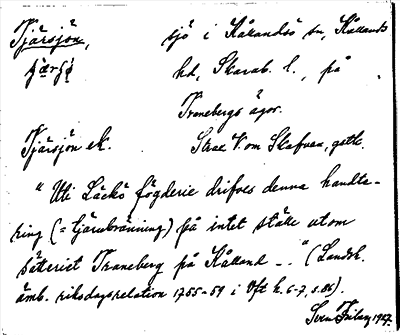 Tjärsjön, sjö i Kållandsö sn, Kållands
hd, Skarab. l., på
Tranebergs ägor.
Tjärsjön ek. Strax V. om
"Uti Läckö fögderie drifves denna handte-
ring (= tjärubränning) på intet ställe utom
säteriet Traneberg på Kålland -.." (Landsh.
ämb. riksdagsrelation 1755-59 i Vft h. 6-7, s. 86).